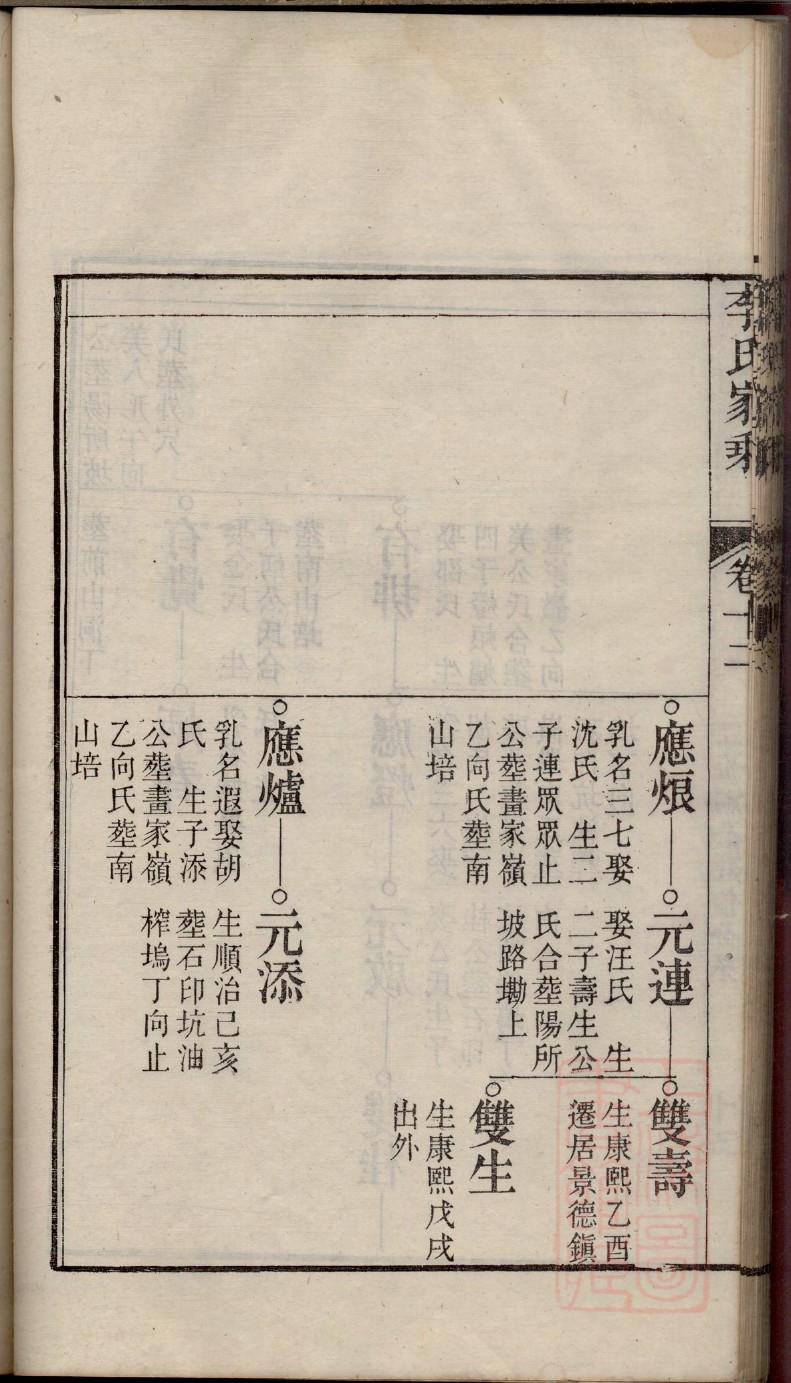 李氏家乘
卷十二
應烺
乳名三七娶
沈氏 生二
子連眾眾止
公塟畫家嶺
乙向氏塟南
山培
元連
娶汪氏 生
二子壽生公
氏合塟陽所
坡路墈上
雙壽
生康熙乙酉
遷居景德鎭
雙生
生康熙戊戌
出外
應爐
乳名遐娶胡
氏 生子添
公塟畫家嶺
乙向氏塟南
山培
元添
生順治己亥
塟石印坑油
榨塢丁向止